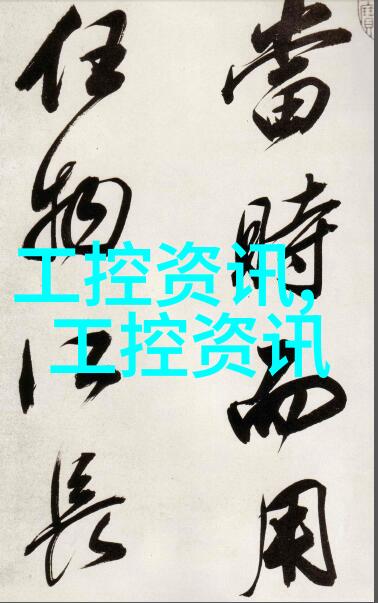 當時而用
任物以長
工控资讯,
工控资讯